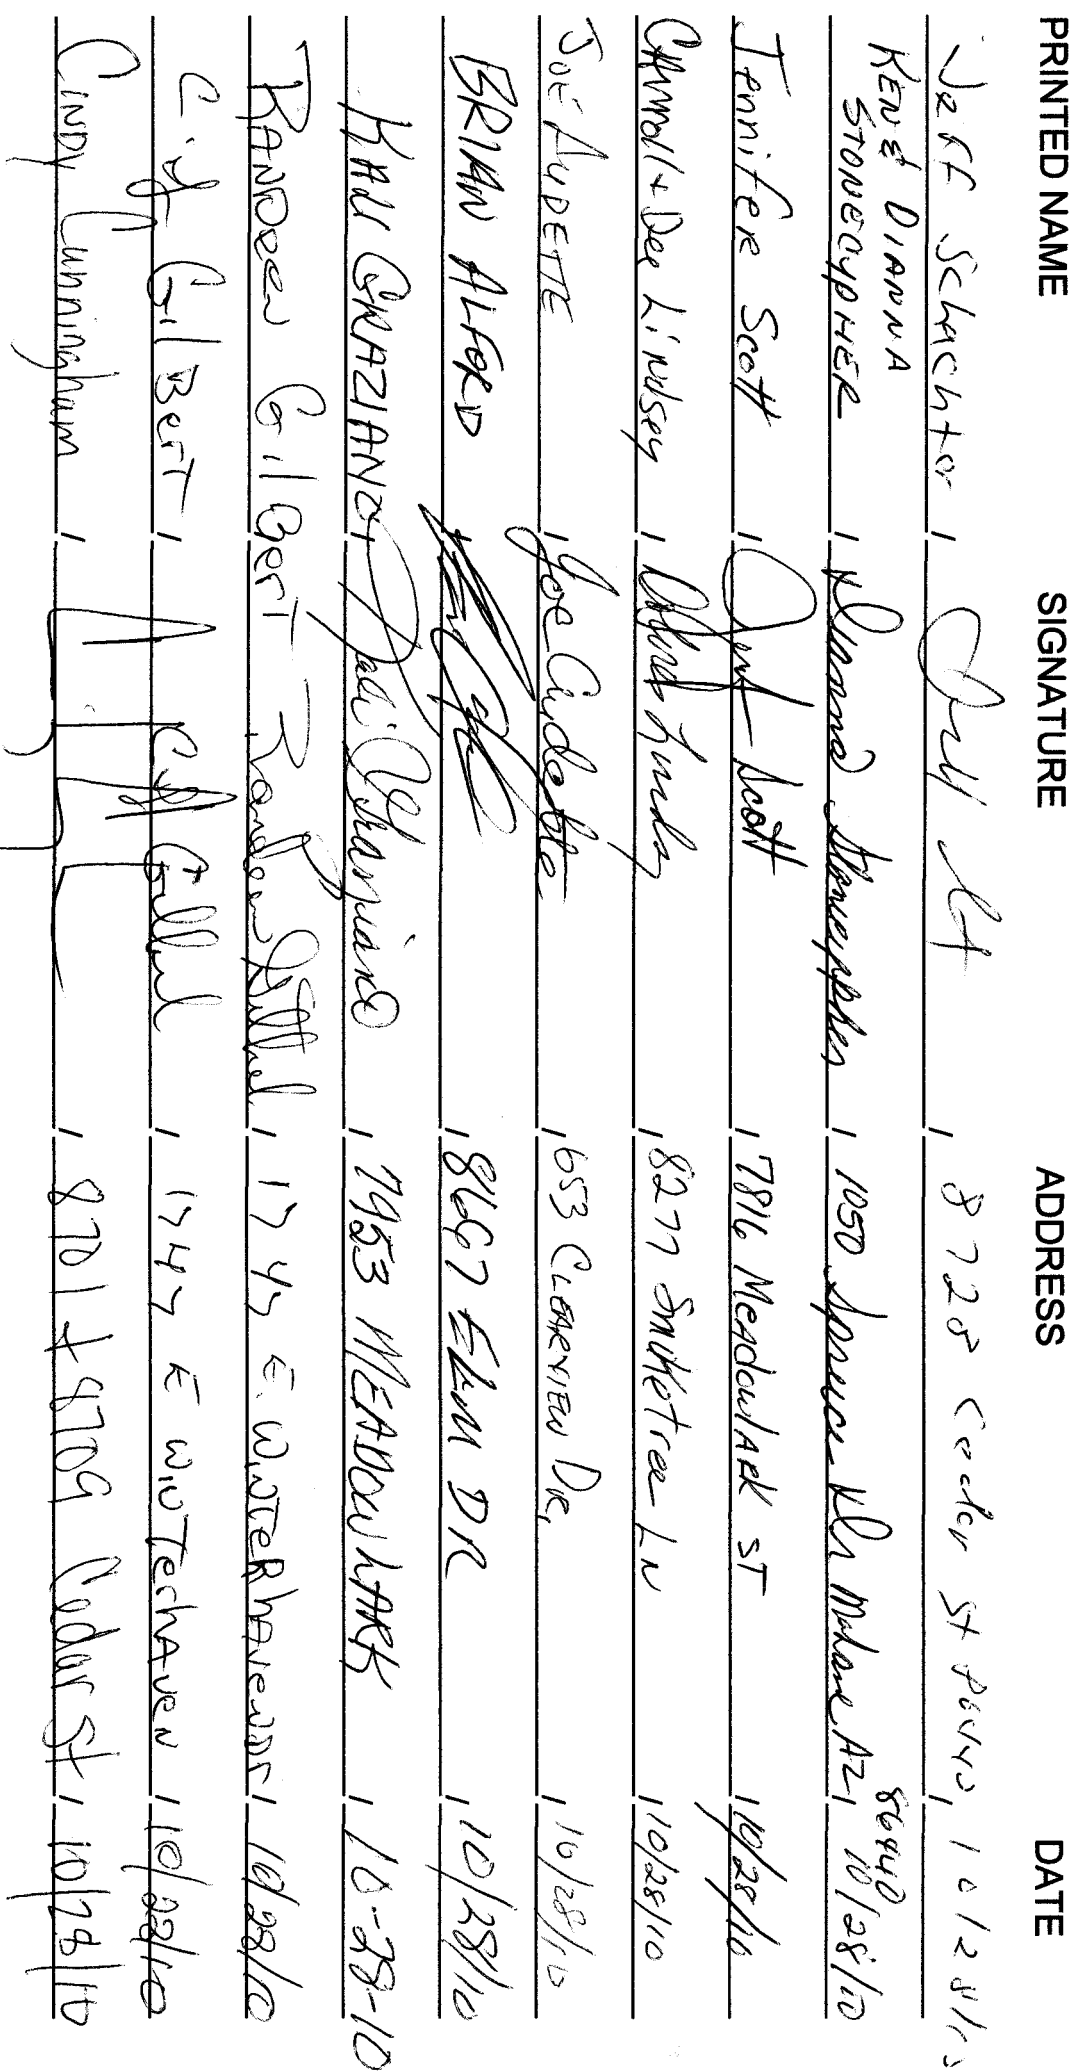 PRINTED NAME SIGNATURE ADDRESS DATE
Jeff Schachter 8728 Cedar St 86440 10/28/10
KEN & DIANNA 86440
STONECYPHER Dianna Stonecypher 1050 Spruce Dr Mohave AZ 10/28/10
Jennifer Scott Scott 7816 MeadowlARK ST 10/28/10
Carroll + Dee Lindsey Lindsey 8277 Smoketree LN 10/28/10
JOE AUDETTE Joe Audette 653 CLEARVIEW DR. 10/28/10
BRIAN ALFORD 8667 ELM DR 10/28/10
KALI GRAZIANO Kali Graziano 7953 MEADOWLARK 10-28-10
RANDEEN GilBerT Randeen Gilbert 1747 E. WiNTeRhAveN DR 10/28/10
C. y. GilBerT C y Gilbert 1747 E WiNTerhAveN 10/28/10
CINDY Cunningham 8701 + 8709 Cedar St 10/28/10